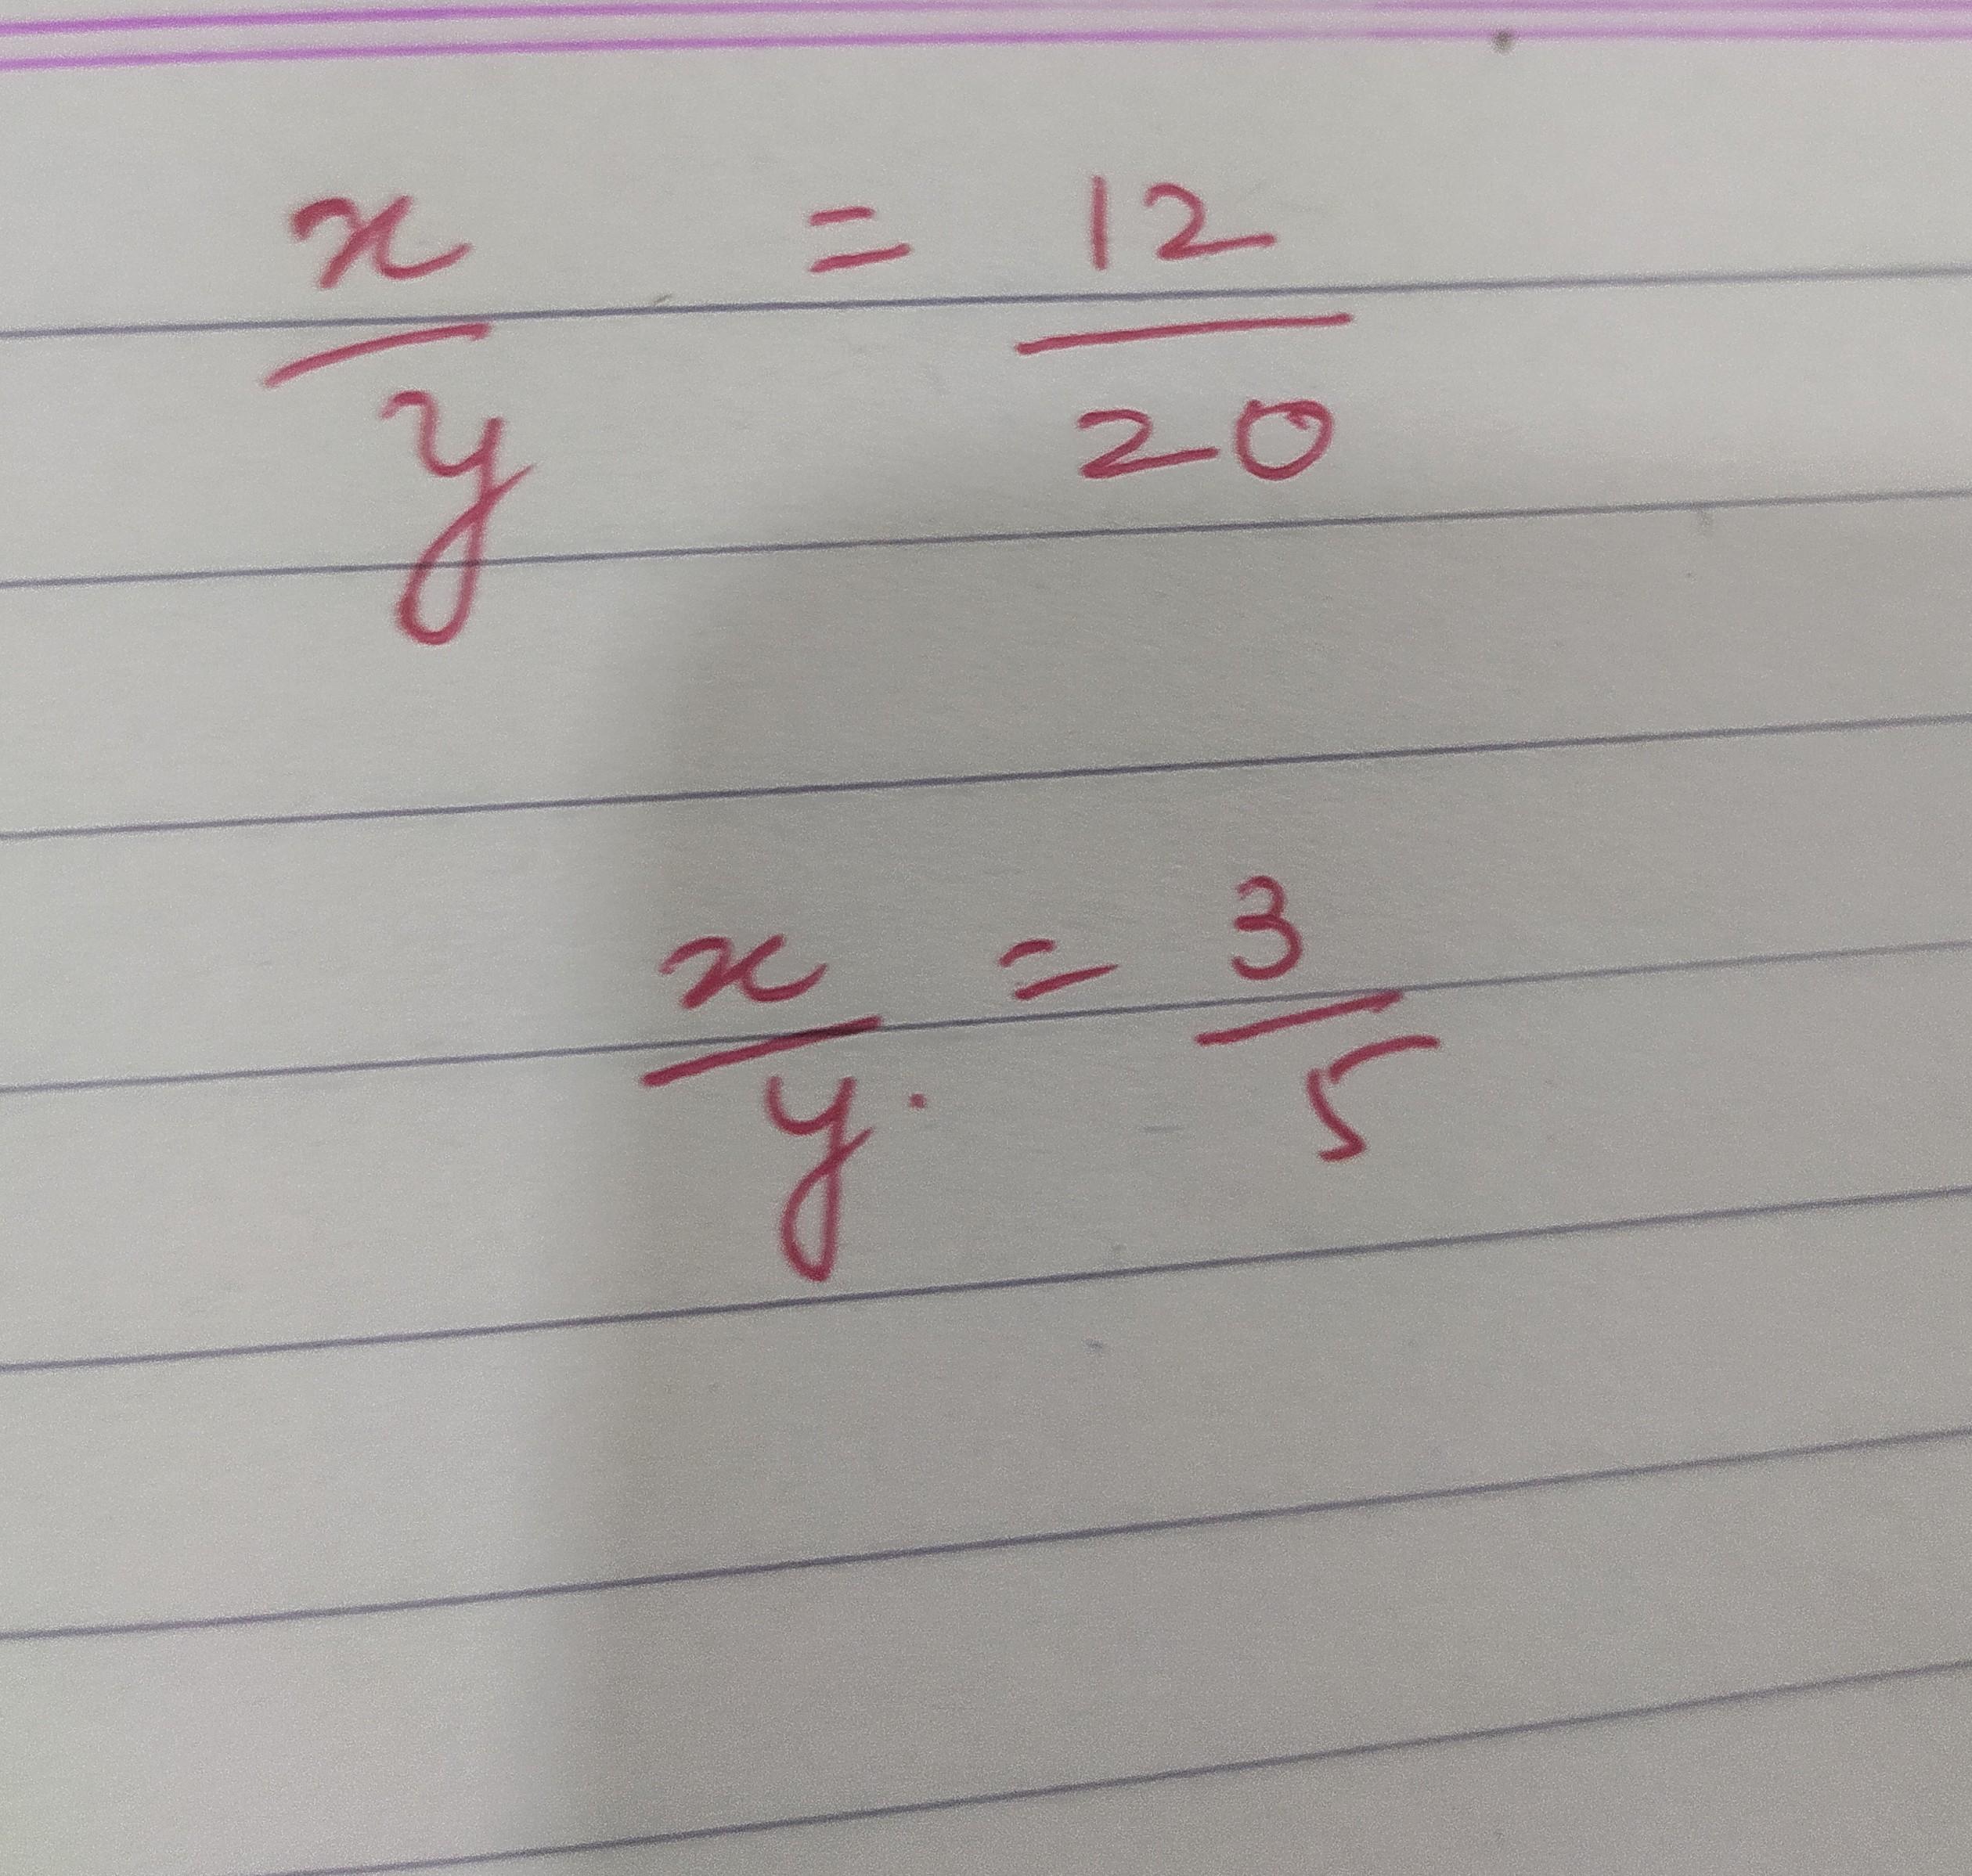 x/y = 12/20
x/y. = 3/5